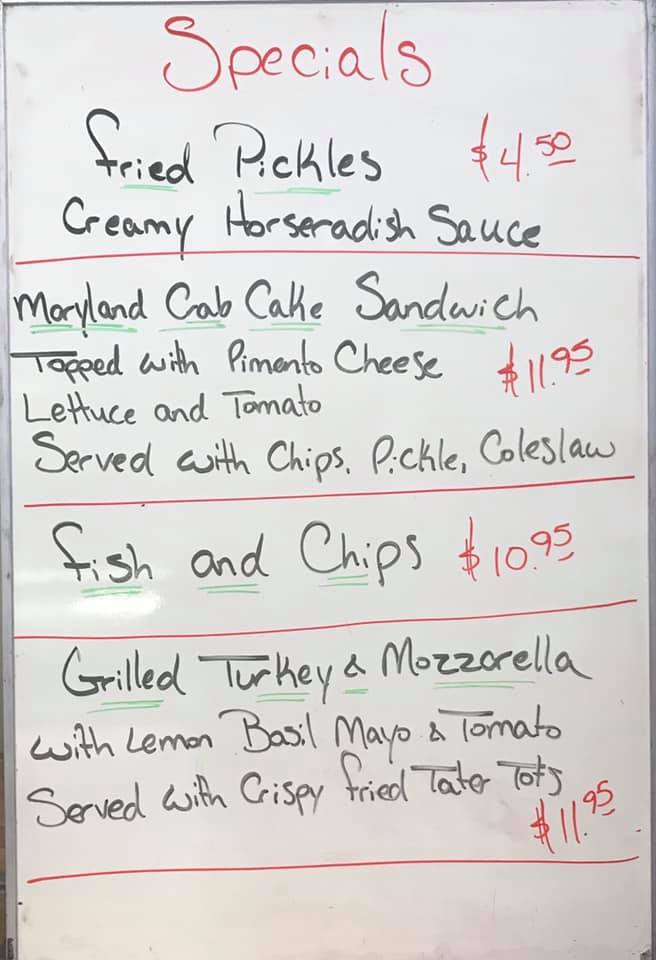 Specials
Fried Pickles $4.50
Creamy Horseradish Sauce
Maryland Crab Cake Sandwich
Topped with Pimento Cheese $11.95
Lettuce and Tomato
Served with Chips, Pickle, Coleslaw
Fish and Chips $10.95
Grilled Turkey & Mozzarella
with Lemon Basil Mayo & Tomato
Served with Crispy Fried Tater Tots
$11.95